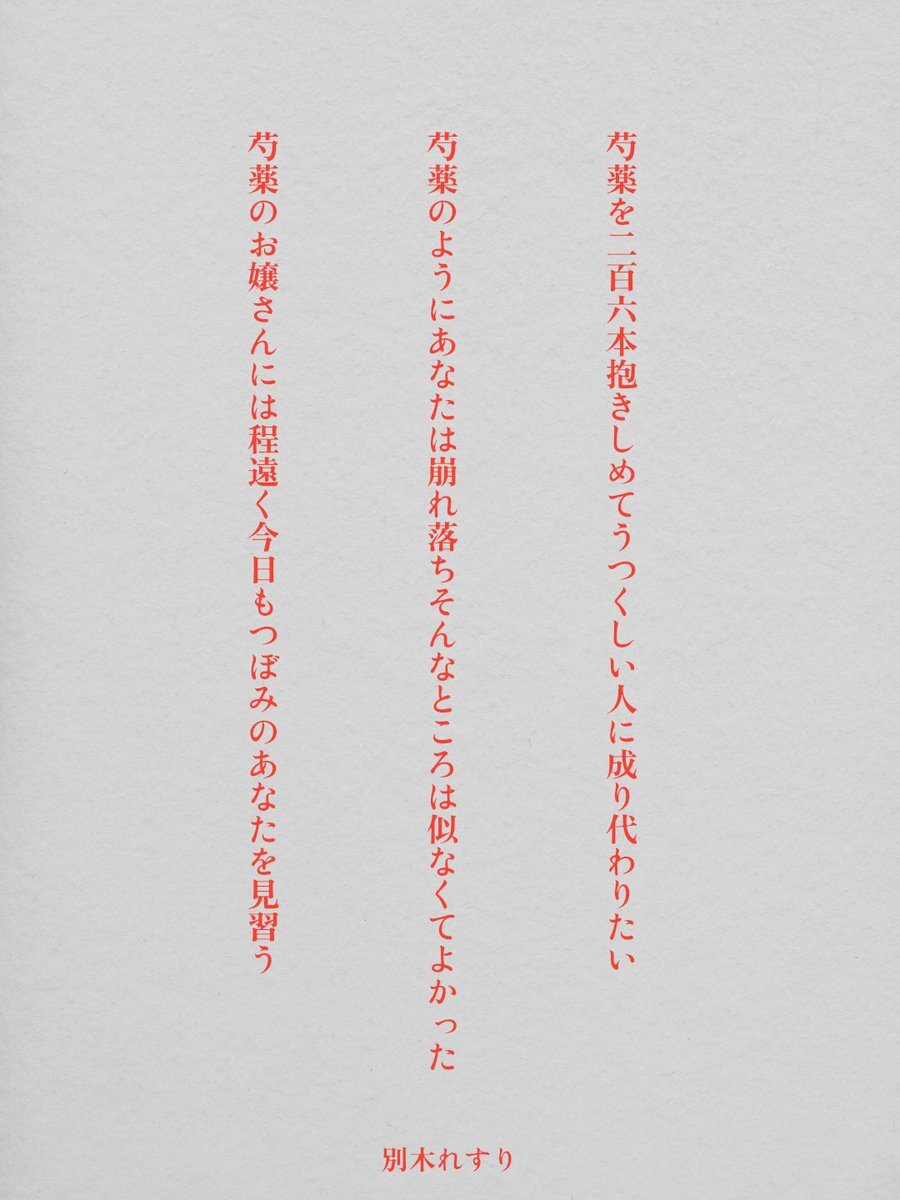 芍薬を二百六本抱きしめてうつくしい人に成り代わりたい
芍薬のようにあなたは崩れ落ちそんなところは似なくてよかった
芍薬のお嬢さんには程遠く今日もつぼみのあなたを見習う
別木れすり